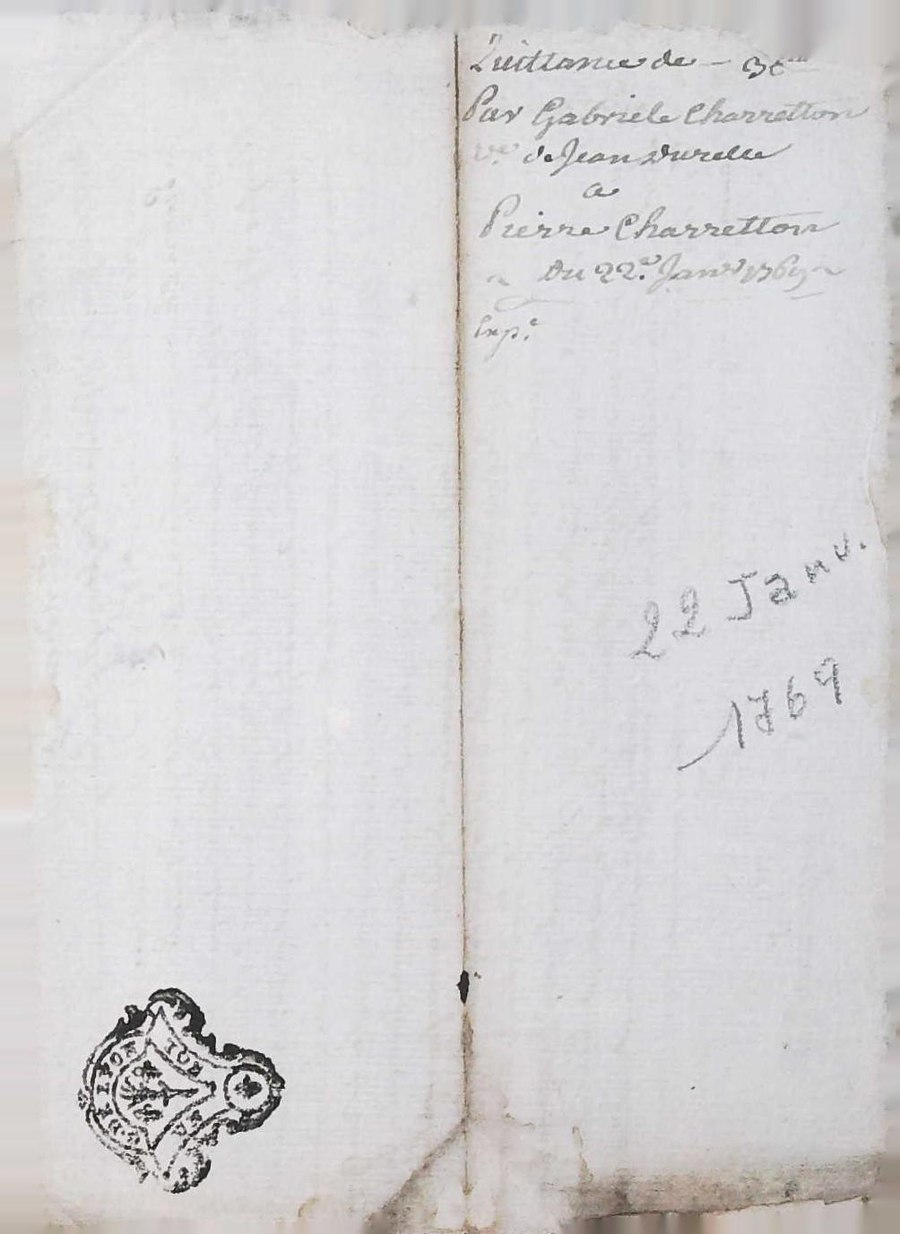 Quittance de - 30ᵗᵗ
Par Gabriele Charretton
v.ᵉ de Jean Durelle
a
Pierre Charretton
Du 22.ᵉ Janv 1769
Exp.ᵉ
22 Janv.
1769
DE LYON